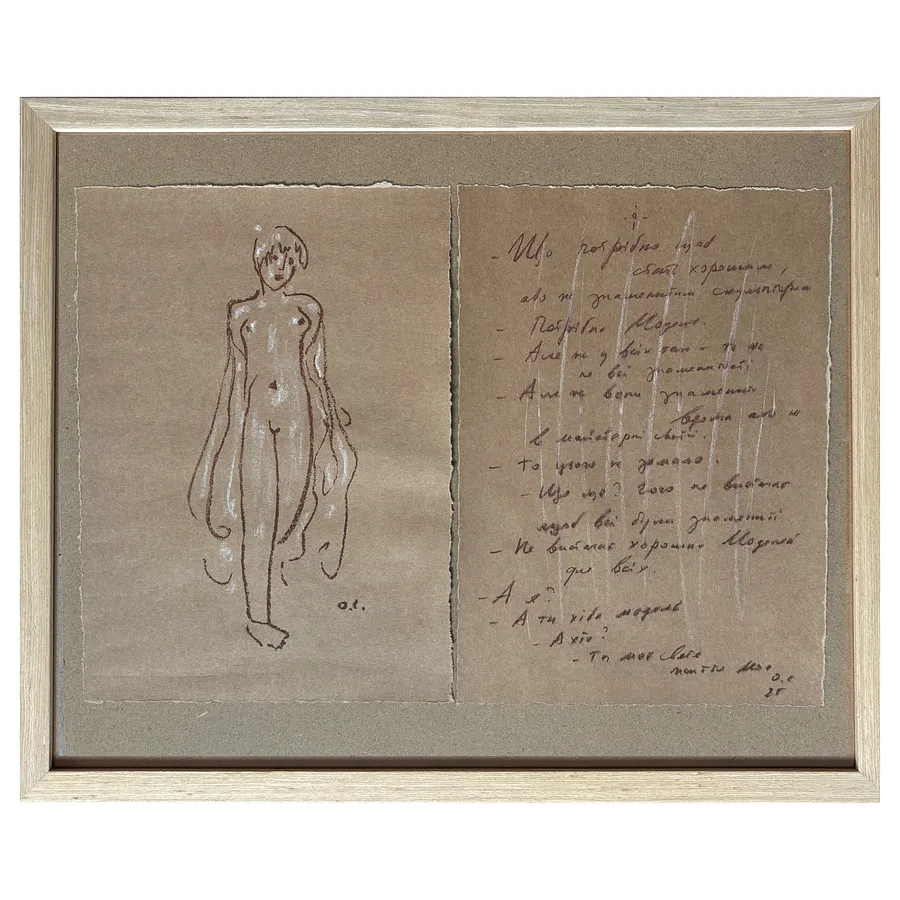 О.С.
- Що потрібно щоб
стать хорошим,
або не знаменитим скульптором
- Потрібна Модель.
- Але ж у всіх так - то ж
не всі знаменитості
- Але ж вони знамениті
в майстерні своїй.
- То цього не замало.
- Що ще? Чого не вистачає
щоб всі були знамениті
- Не вистачає хороших Моделей
для всіх.
- А я?
- А ти хіба модель
- А хто?
- Ти моє
життя моє
О.С
25